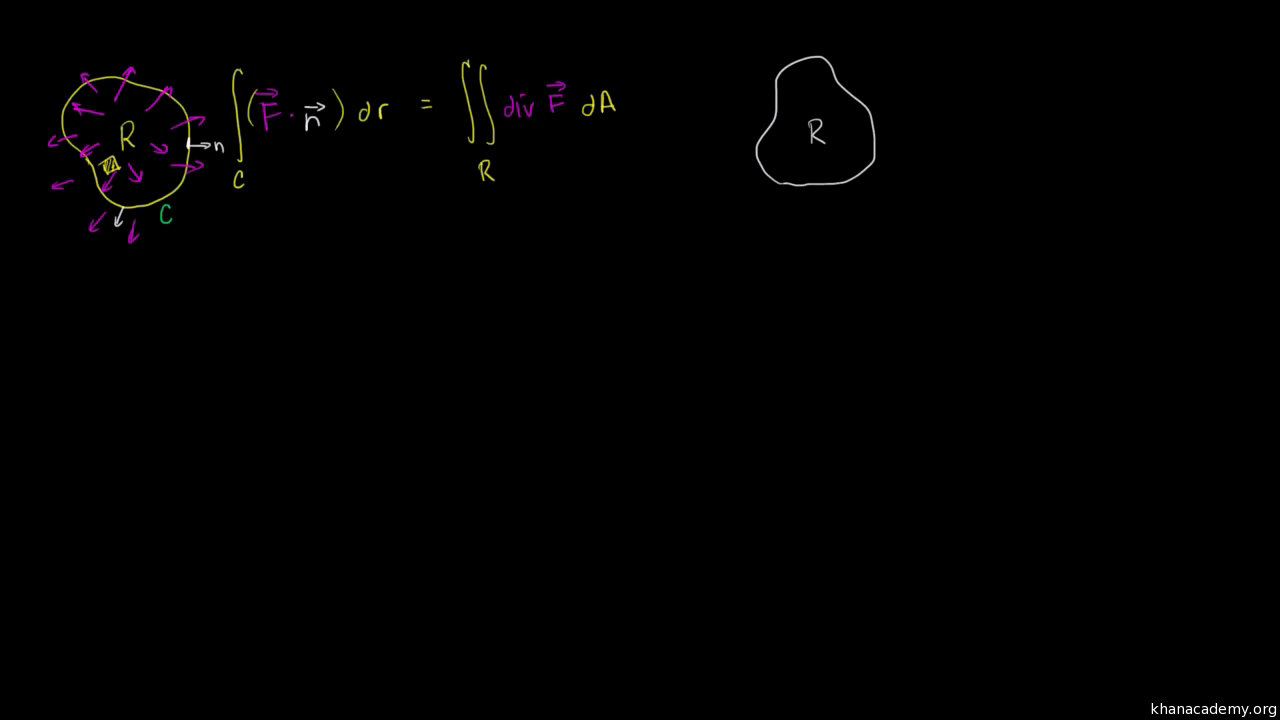 R
n
C
∫_C (F⃗ · n⃗) dr = ∬_R div F⃗ dA
R
khanacademy.org